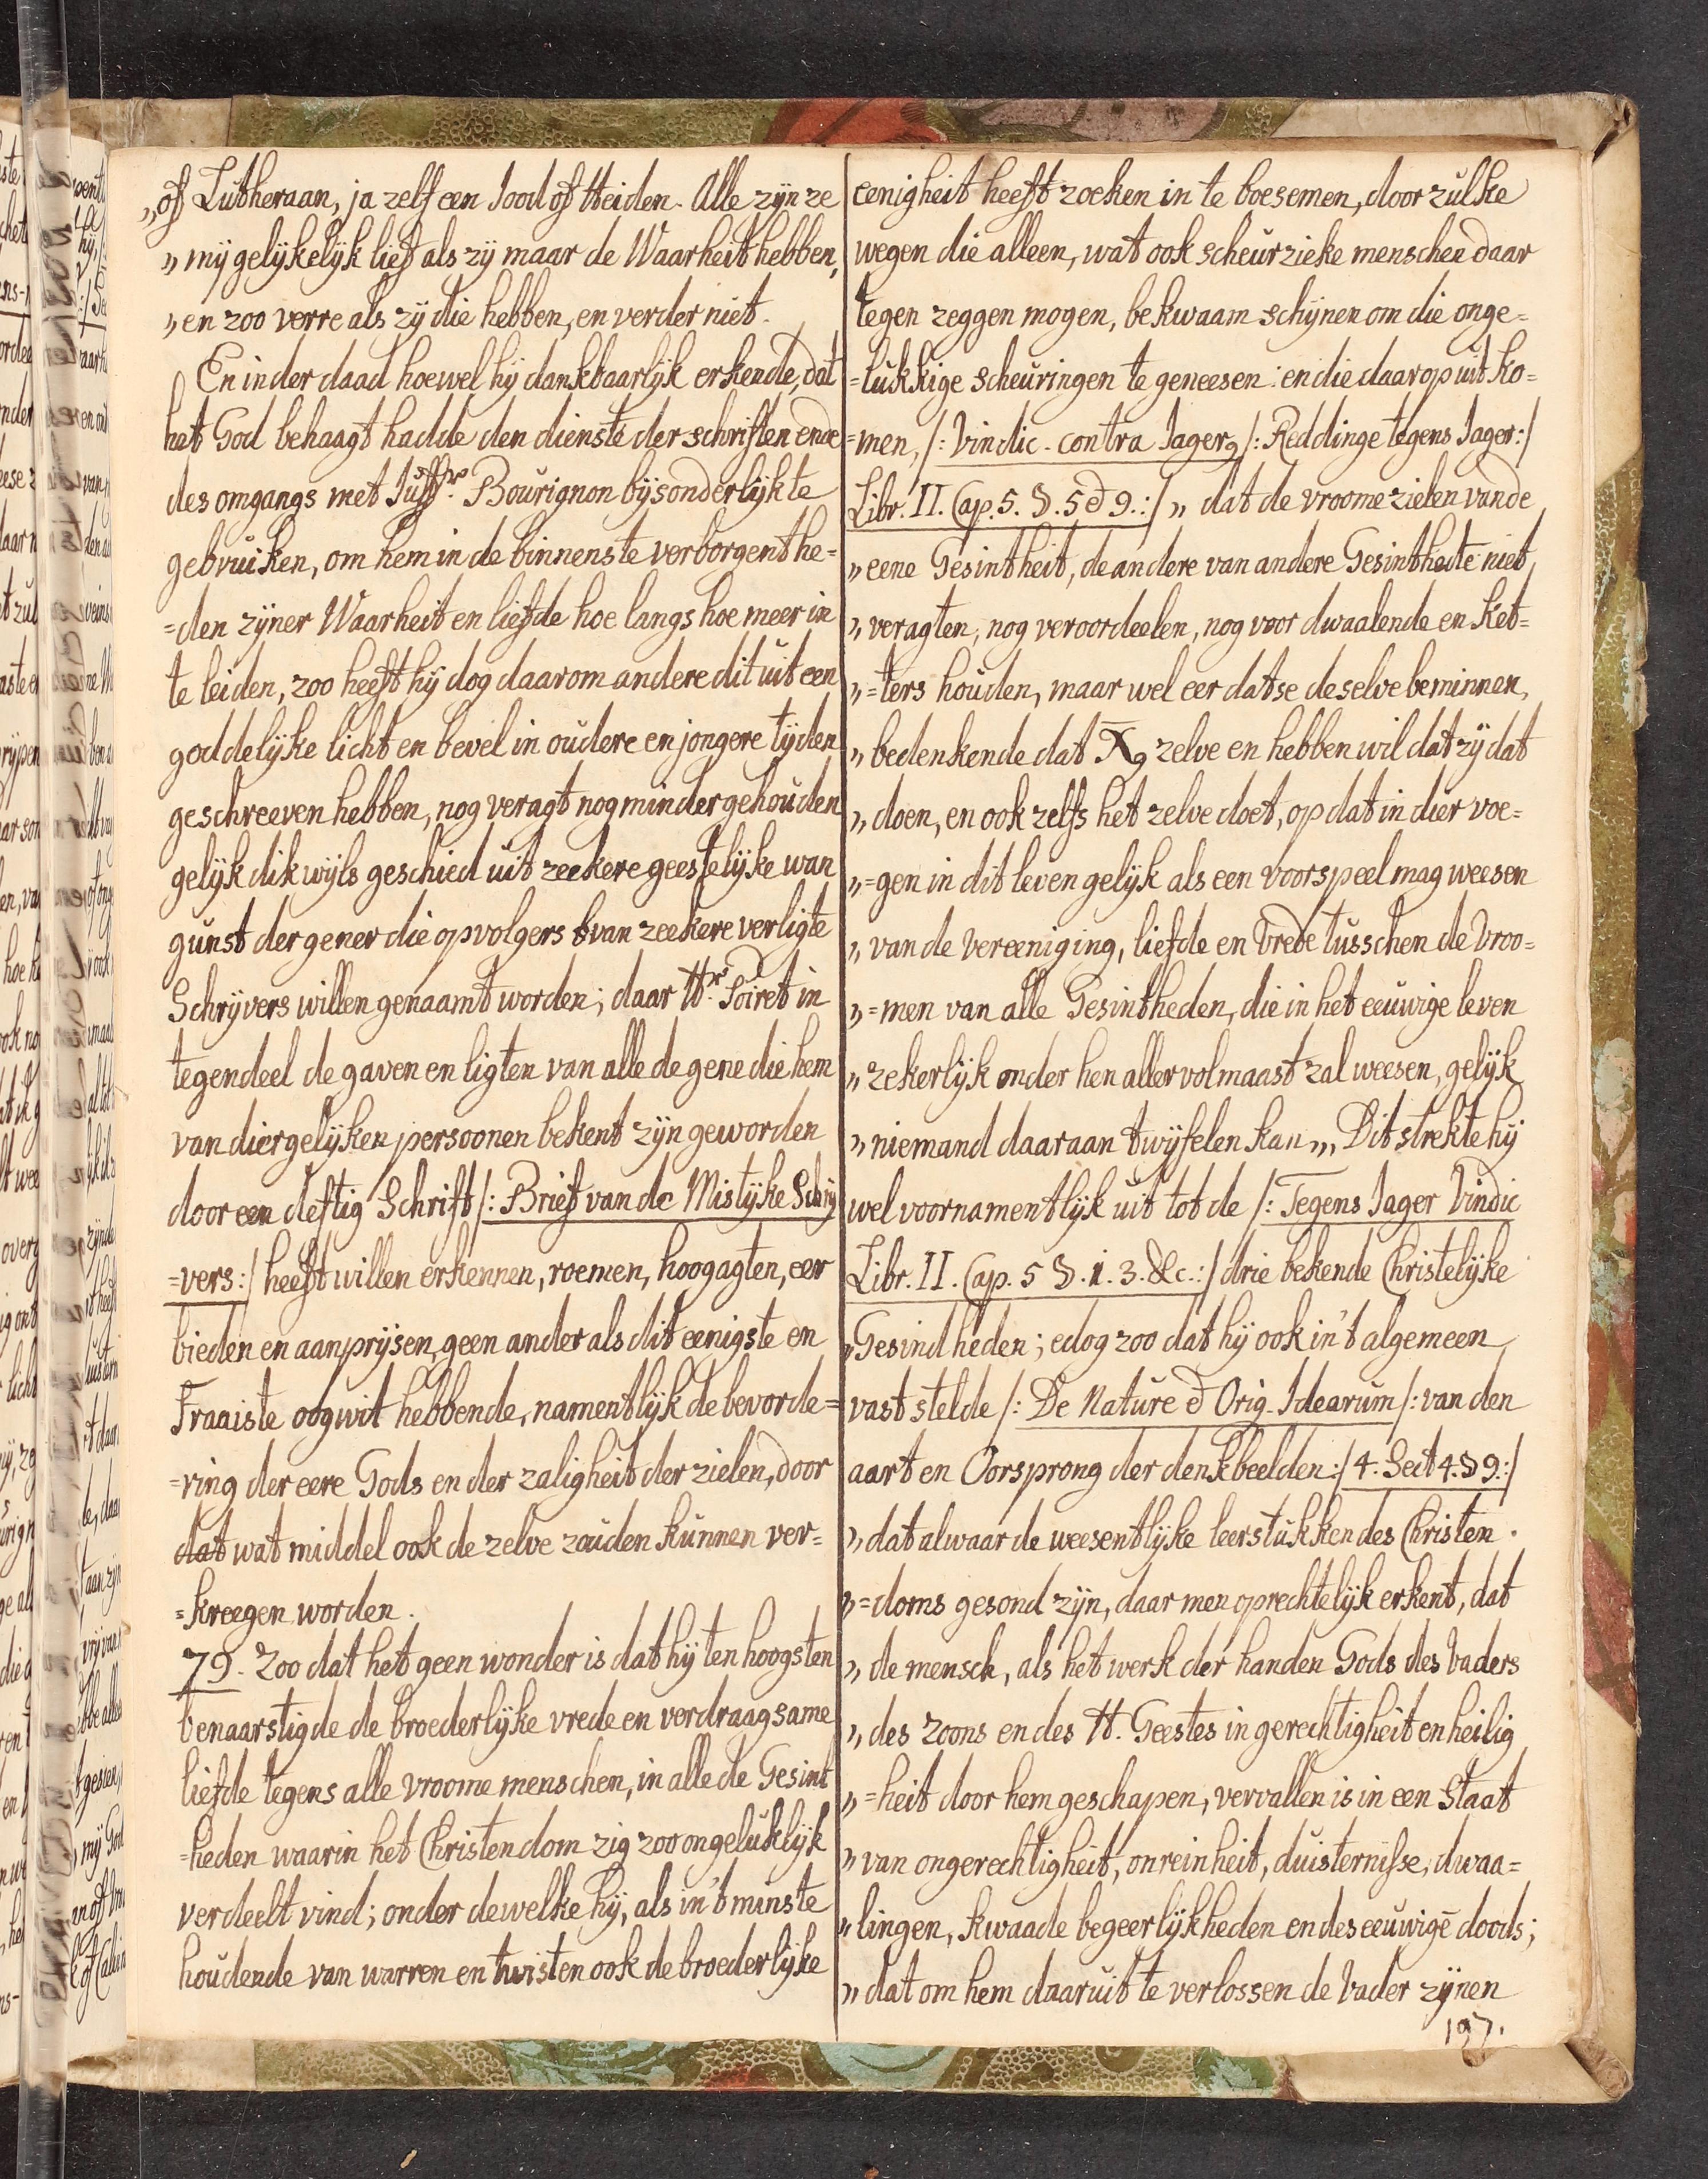 „of Lutheraan, ja zelf een Jood of Heiden. Alle zijn ze
„mij gelijkelijk lief als zij maar de Waarheit hebben,
„en zoo verre als zij die hebben, en verder niet.
En inder daad hoewel hij dankbaarlijk erkende, dat
het God behaagt hadde den dienste der schriften ende
des omgangs met Juffr. Bourignon bijsonderlijk te
gebruiken, om hem in de binnenste verborgenthe=
=den zijner Waarheit en liefde hoe langs hoe meer in
te leiden, zoo heeft hij dog daarom andere dit uit een
goddelijke licht en bevel in oudere en jongere tijden
geschreeven hebben, nog veragt nog minder gehouden
gelijk dikwijls geschied uit zeekere geestelijke wan
gunst der gener die opvolgers van zeekere verligte
Schrijvers willen genaamt worden; daar Hr. Poiret in
tegendeel de gaven en ligten van alle de gene die hem
van diergelijken persoonen bekent zijn geworden
door een deftig Schrift /: Brief van de Mistijke Schrij
=vers:/ heeft willen erkennen, roemen, hoogagten, eer
bieden en aanprijsen, geen ander als dit eenigste en
Fraaiste oogwit hebbende, namentlijk de bevorde=
=ring der eere Gods en der zaligheit der zielen, door
dat wat middel ook de zelve zouden kunnen ver=
=kreegen worden.
79. Zoo dat het geen wonder is dat hij ten hoogsten
benaarstigde de broederlijke vrede en verdraagsame
liefde tegens alle vroome menschen, in alle de Gesint
=heden waarin het Christendom zig zoo ongeluklijk
verdeelt vind; onder dewelke hij, als in't minste
houdende van warren en twisten ook de broederlijke
eenigheit heeft zoeken in te boesemen, door zulke
wegen die alleen, wat ook scheurzieke menschen daar
tegen zeggen mogen, bekwaam schijnen om die onge=
=lukkige scheuringen te geneesen: en die daar op uit ko=
=men, /: Vindic. contra Jager, /: Reddinge tegens Jager:/
Libr. II. Cap. 5. §. 5 & 9.:/ „ dat de vroome zielen van de
„eene Gesintheit, de andere van andere Gesintheite niet
„veragten, nog veroordeelen, nog voor dwaalende en ket=
„=ters houden, maar wel eer datse deselve beminnen,
„bedenkende dat X9 zelve en hebben wil dat zij dat
„doen, en ook zelfs het zelve doet, op dat in dier voe=
„=gen in dit leven gelijk als een voorspeel mag weesen
„van de vereeniging, liefde en vrede tusschen de vroo=
„=men van alle Gesintheden, die in het eeuwige leven
„zekerlijk onder hen allervolmaast zal weesen, gelijk
„niemand daar aan twijfelen kan„, Dit strekte hij
wel voornamentlijk uit tot de /: Tegens Jager Vindic
Libr. II. Cap. 5 §. 1. 3. &c.:/ drie bekende Christelijke
„Gesindheden; edog zoo dat hij ook in't algemeen
vast stelde /: De Nature & Orig. Idearum /: van den
aart en Oorsprong der denkbeelden:/ 4. Sect 4. § 9:/
„dat alwaar de weesentlijke leerstukken des Christen.
„=doms gesond zijn, daar men oprechtelijk erkent, dat
„de mensch, als het werk der handen Gods des Vaders
„des Zoons en des H. Geestes in gerechtigheit en heilig
„=heit door hem geschapen, vervallen is in een Staat
„van ongerechtigheit, onreinheit, duisternisse, dwaa=
„lingen, kwaade begeerlijkheden en des eeuwigē doods;
„dat om hem daaruit te verlossen de Vader zijnen
197.